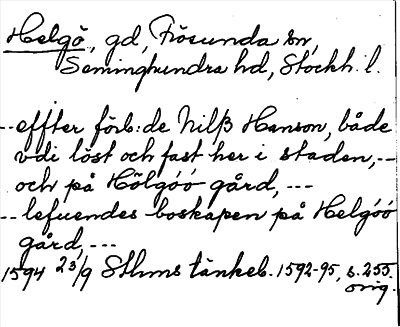 Helgö, gd, Frösunda sn,
Seminghundra hd, Stockh. l.
--effter förb:de Nilß Hanson, både
vdi löst och fast her i staden,--
och på Hölgóó gård, ---
--lefuendes boskapen på Helgóó
gård, ---
1594 23/9 Sthms tänkeb. 1592-95, s. 255.
orig.